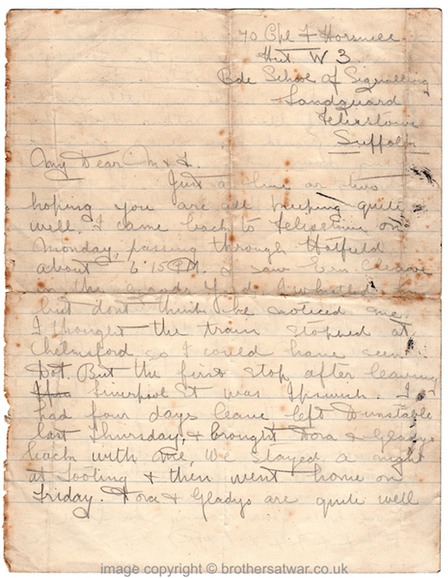 70 Cpl F Horsnell
Hut W 3
Bde School of Signalling
Landguard
Felixstowe
Suffolk
My Dear M & F.
Just a line or two
hoping you are all keeping quite
well. I came back to Felixstowe on
Monday, passing through Hatfield
about 6.15 PM. I saw Ern
in the goods yard & whistled
but dont think he noticed me.
I thought the train stopped at
Chelmsford so I could have seen
But the first stop after leaving
Liverpool St was Ipswich. I
had four days leave left Dunstable
last Thursday, & brought Dora & Gladys
back with me, We stayed a night
at Tooting & then went home on
Friday. Dora & Gladys are quite well
image copyright © brothersatwar.co.uk